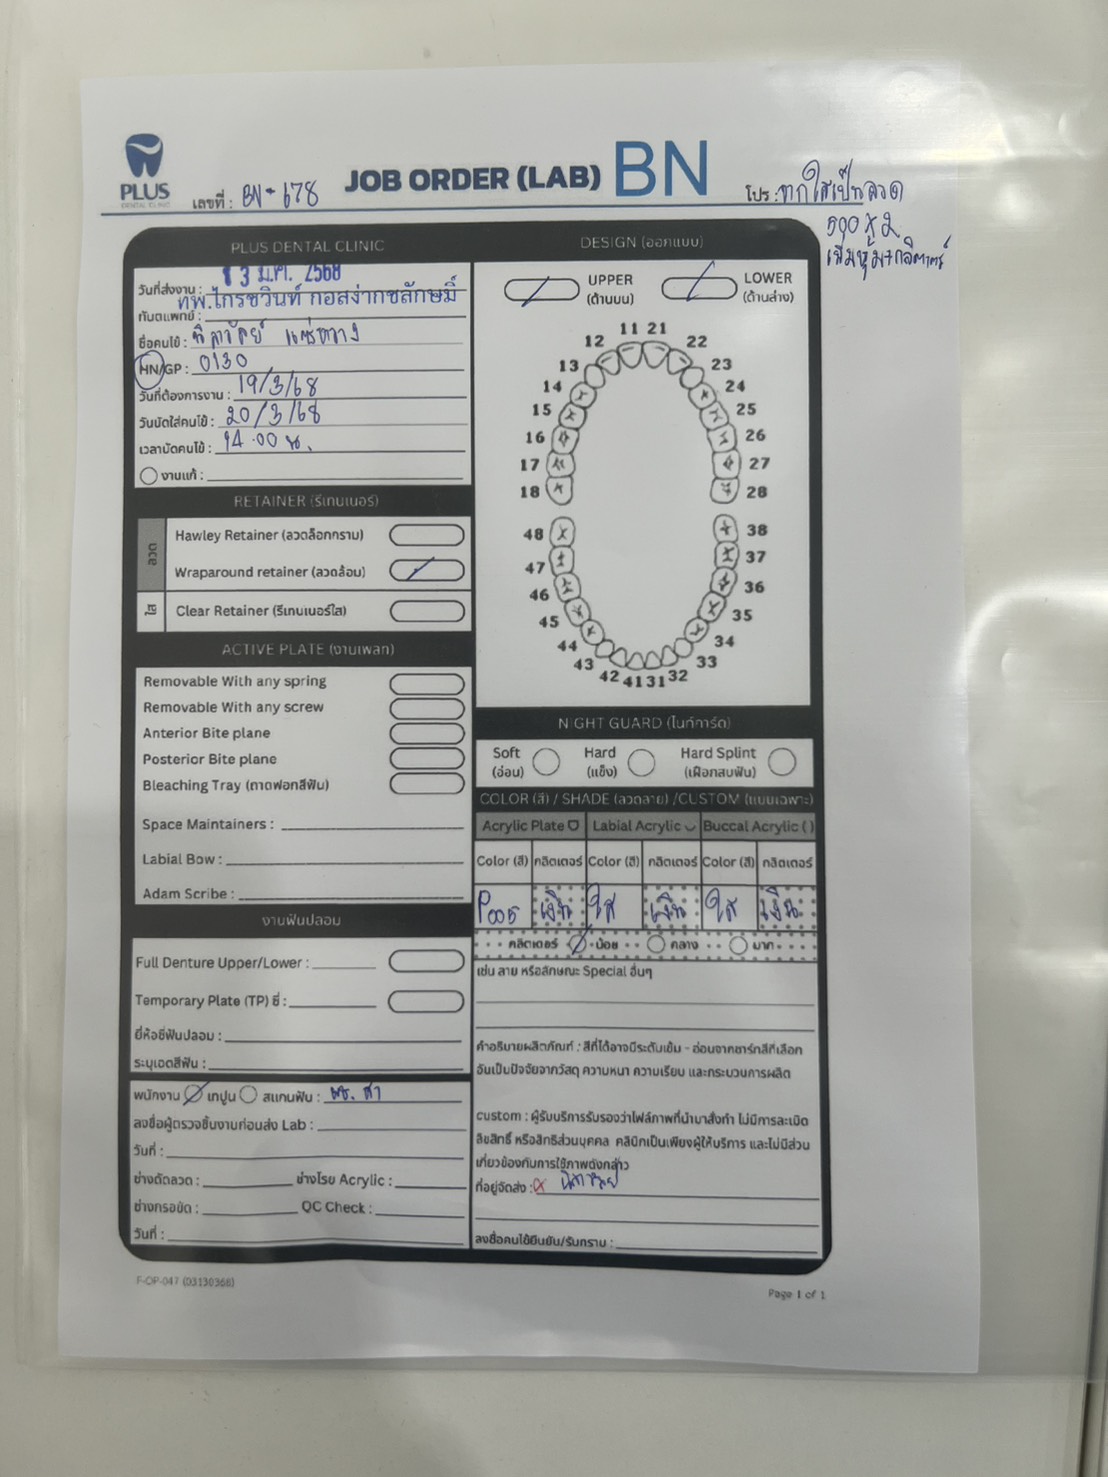 PLUS
DENTAL CLINIC
เลขที่ : BN-678
JOB ORDER (LAB) BN
โปร : จากใสเป็นลวด
500 x 2
เพิ่มหุ้ม+กลิตเตอร์
PLUS DENTAL CLINIC
วันที่ส่งงาน : 13 มี.ค. 2568
ทันตแพทย์ : ทพ.ไกรชวินท์ กอสง่ากชลักษมิ์
ชื่อคนไข้ :
HN/GP : 0130
วันที่ต้องการงาน : 19/3/68
วันนัดใส่คนไข้ : 20/3/68
เวลานัดคนไข้ : 14.00 น.
งานแก้ :
RETAINER (รีเทนเนอร์)
ลวด
Hawley Retainer (ลวดล็อกกราม)
Wraparound retainer (ลวดล้อม)
ใส
Clear Retainer (รีเทนเนอร์ใส)
ACTIVE PLATE (งานเพลท)
Removable With any spring
Removable With any screw
Anterior Bite plane
Posterior Bite plane
Bleaching Tray (ถาดฟอกสีฟัน)
Space Maintainers :
Labial Bow :
Adam Scribe :
งานฟันปลอม
Full Denture Upper/Lower :
Temporary Plate (TP) ซี่ :
ยี่ห้อซี่ฟันปลอม :
ระบุเฉดสีฟัน :
พนักงาน เทปูน สแกนฟัน : พช. ศา
ลงชื่อผู้ตรวจชิ้นงานก่อนส่ง Lab :
วันที่ :
ช่างดัดลวด : ช่างโรย Acrylic :
ช่างกรอขัด : QC Check :
วันที่ :
DESIGN (ออกแบบ)
UPPER
(ด้านบน)
LOWER
(ด้านล่าง)
11 21
12 22
13 23
14 24
15 25
16 26
17 27
18 28
48 38
47 37
46 36
45 35
44 34
43 33
42 41 31 32
NIGHT GUARD (ไนท์การ์ด)
Soft
(อ่อน)
Hard
(แข็ง)
Hard Splint
(เฝือกสบฟัน)
COLOR (สี) / SHADE (ลวดลาย) /CUSTOM (แบบเฉพาะ)
Acrylic Plate Labial Acrylic Buccal Acrylic ( )
Color (สี) กลิตเตอร์ Color (สี) กลิตเตอร์ Color (สี) กลิตเตอร์
P005 เงิน ใส เงิน ใส เงิน
กลิตเตอร์ น้อย กลาง มาก
เช่น ลาย หรือลักษณะ Special อื่นๆ
คำอธิบายผลิตภัณฑ์ : สีที่ได้อาจมีระดับเข้ม - อ่อนจากชาร์ทสีที่เลือก
อันเป็นปัจจัยจากวัสดุ ความหนา ความเรียบ และกระบวนการผลิต
custom : ผู้รับบริการรับรองว่าไฟล์ภาพที่นำมาสั่งทำ ไม่มีการละเมิด
ลิขสิทธิ์ หรือสิทธิส่วนบุคคล คลินิกเป็นเพียงผู้ให้บริการ และไม่มีส่วน
เกี่ยวข้องกับการใช้ภาพดังกล่าว
ที่อยู่จัดส่ง :
ลงชื่อคนไข้ยืนยัน/รับทราบ :
F-OP-047 (03130366)
Page 1 of 1